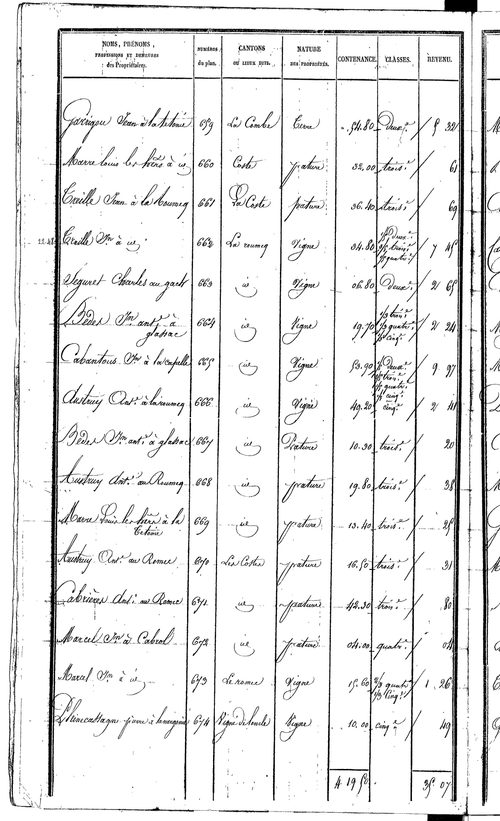 NOMS, PRÉNOMS, PROFESSIONS ET DEMEURES des Propriétaires. NUMÉROS du plan. CANTONS OU LIEUX DITS. NATURE DES PROPRIÉTÉS. CONTENANCE. CLASSES. REVENU.
Garrigou Jean à la 659 La Combe Terre 54.80 Deux.e 5 32
Marre Louis les hères à id 660 Coste pature 32.00 trois.e 61
Treille Jean à la Roumeg 661 La Coste pature 36.40 trois.e 69
Treille Jn à id 662 La roumeg Vigne 34.80 1/3 deux.e 1/3 trois.e 1/3 quatr.e 7 45
Seguret Charles au 663 id Vigne 06.80 Deux.e 2 65
Bedes Jn ant. à glassac 664 id Vigne 19.70 1/3 trois.e 1/3 quatr.e 1/3 cinq.e 2 24
Cabantous Jn à la capelle 665 id Vigne 53.90 deux.e trois.e quatr.e cinq.e 9 97
Austruy Ant. à la roumeg 666 id Vigne 49.20 cinq.e 2 41
Bedes Jn ant. à glassac 667 id Pature 10.30 trois.e 20
Austruy Ant. au Roumeg 668 id pature 19.80 trois.e 38
Marre Louis les hères à la 669 id pature 13.40 trois.e 25
Austruy Ant. au Romec 670 Les Costes pature 16.50 trois.e 31
Cabrières Ant. au Romec 671 id pature 42.30 trois.e 80
Marcel Jn à Cabrol 672 id pature 04.00 quatr.e 04
Marcel Jn à id 673 Le romec Vigne 15.60 quatr.e cinq.e 1 26
pierre à 674 Vigne Vigne 10.00 cinq.e 49
4 19 50 35 07